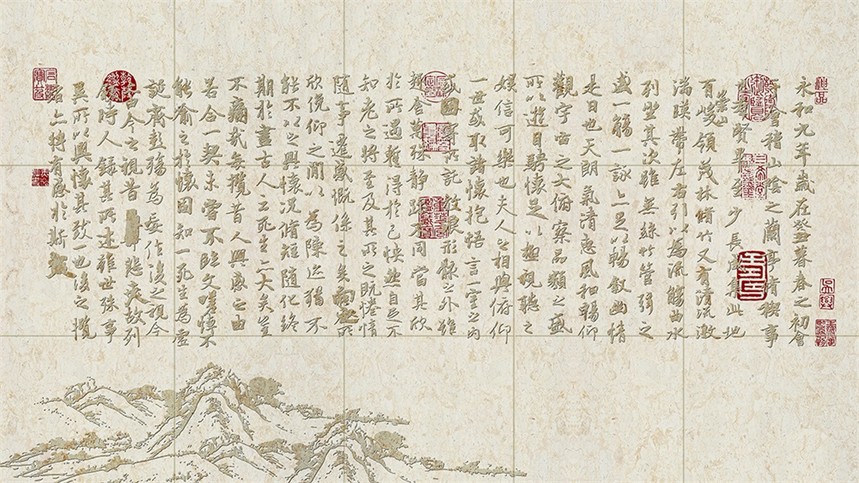 永和九年歲在癸丑暮春之初會
稽山陰之蘭亭脩禊事
賢畢至少長咸集此地
有崇山峻領茂林脩竹又有清流激
湍暎帶左右引以為流觴曲水
列坐其次雖無絲竹管弦之
盛一觴一詠亦足以暢叙幽情
是日也天朗氣清惠風和暢仰
觀宇宙之大俯察品類之盛
所以遊目騁懷足以極視聽之
娛信可樂也夫人之相與俯仰
一世或取諸懷抱悟言一室之內
或因寄所託放浪形骸之外雖
趣舍萬殊靜躁不同當其欣
於所遇蹔得於己快然自足不
知老之將至及其所之既惓情
隨事遷感慨係之矣向之所
欣俛仰之間以為陳迹猶不
能不以之興懷況脩短隨化終
期於盡古人云死生亦大矣豈
不痛哉每攬昔人興感之由
若合一契未嘗不臨文嗟悼不
能喻之於懷固知一死生為虛
誕齊彭殤為妄作後之視今
由今之視昔悲夫故列
叙時人錄其所述雖世殊事
異所以興懷其致一也後之攬
者亦將有感於斯